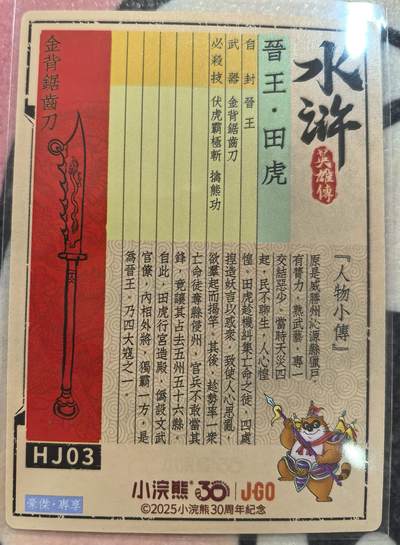 水滸
英雄傳
晉王·田虎
自封 晉王
武器 金背鋸齒刀
必殺技 伏虎霸極斬 擒熊功
金背鋸齒刀
『人物小傳』
原是威勝州沁源縣獵戶
有膂力，熟武藝，專一
交結惡少。當時天災四
起，民不聊生，人心惶
惶，田虎趁機糾集亡命之徒，四處
捏造妖言以惑衆，致使人心思亂，
欲羣起而揭竿。其後，趁勢率一衆
亡命徒奪縣侵州，官兵不敢當其
鋒，竟讓其占去五州五十六縣。
自此，田虎行宮造殿，僞設文武
官僚，內相外將，獨霸一方，是
爲晉王，乃四大寇之一。
HJ03
豪傑·專享
小浣熊 30 | J·GO
©2025小浣熊30周年紀念